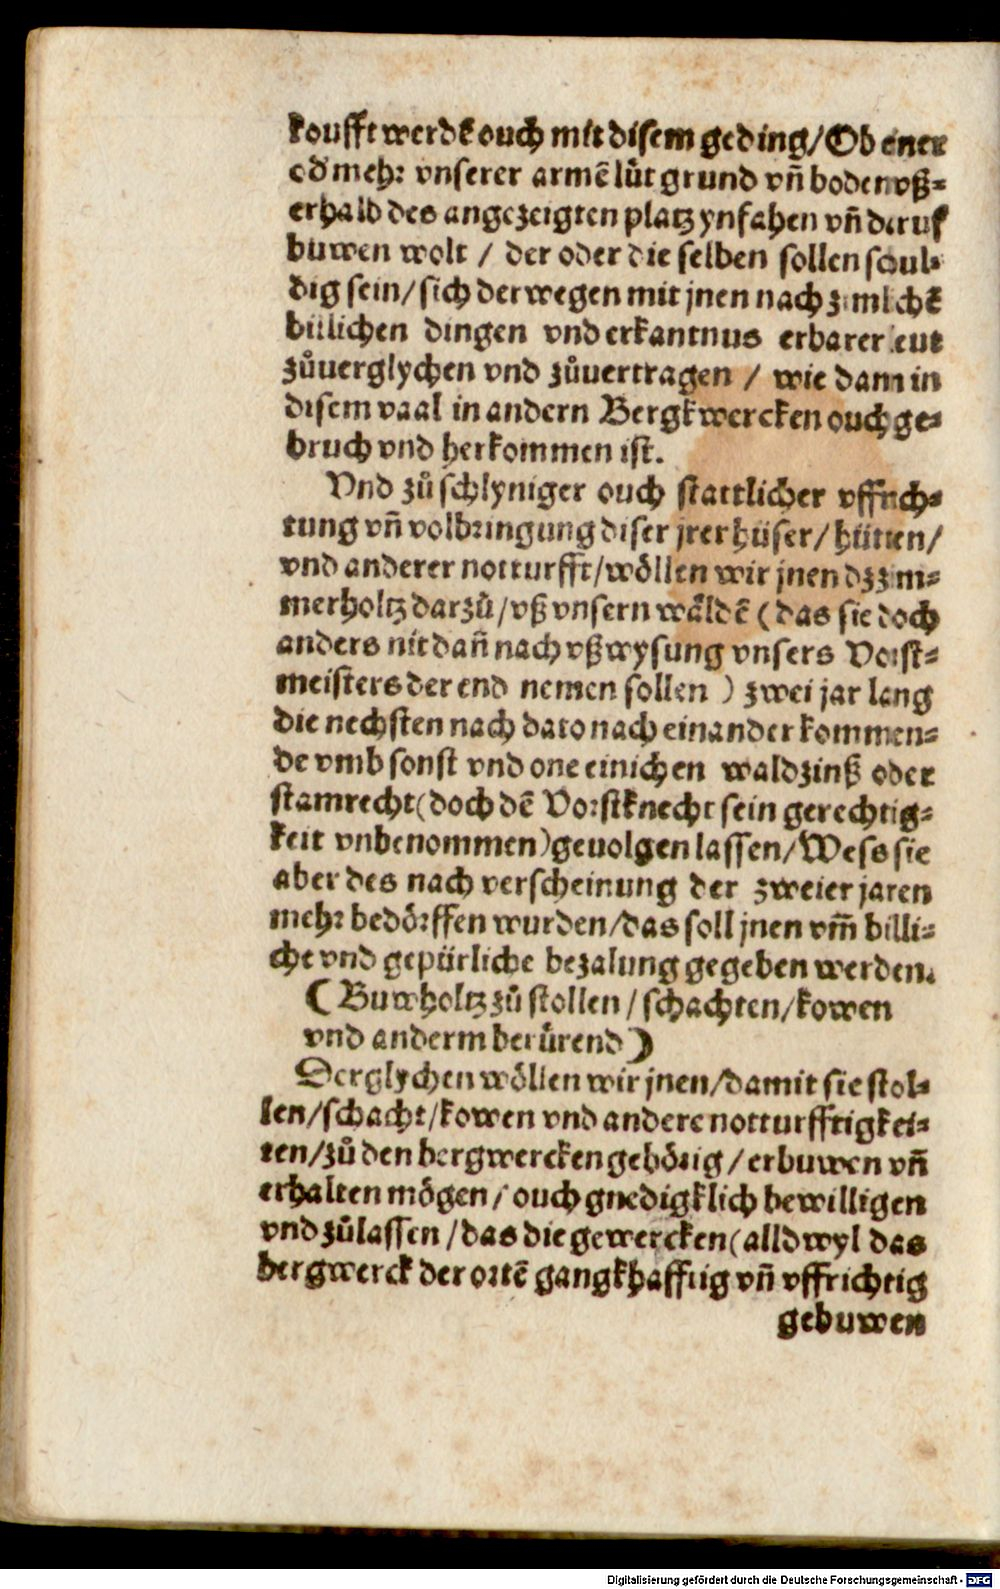 koufft werdē ouch mit disem geding/Ob einer
od̕ mehr vnserer armē lüt grund vn̄ boden vß⸗
erhalb des angezeigten platz ynfahen vn̄ deruf
buwen wolt / der oder die selben sollen schul⸗
dig sein/sich derwegen mit jnen nach zimlichē
billichen dingen vnd erkantnus erbarer leut
zůuerglychen vnd zůuertragen / wie dann in
disem vaal in andern Bergkwercken ouch ge⸗
bruch vnd herkommen ist.
Vnd zů schlyniger ouch stattlicher vffrich⸗
tung vn̄ volbringung diser jrer hüser/hütten/
vnd anderer notturfft/wöllen wir jnen dz zim⸗
merholtz darzů/vß vnsern wäldē (das sie doch
anders nit dan̄ nach vßwysung vnsers Vorst⸗
meisters der end nemen sollen ) zwei jar lang
die nechsten nach dato nach einander kommen⸗
de vmb sonst vnd one einichen waldzinß oder
stamrecht(doch dē Vorstknecht sein gerechtig⸗
keit vnbenommen)geuolgen lassen/Wess sie
aber des nach verscheinung der zweier jaren
mehr bedörffen wurden/das soll jnen vm̄ billi⸗
che vnd gepürliche bezalung gegeben werden.
(Buwholtz zů stollen/schachten/kowen
vnd anderm berürend)
Derglychen wöllen wir jnen/damit sie stol⸗
len/schacht/kowen vnd andere notturfftigkei⸗
ten/zů den bergwercken gehörig/erbuwen vn̄
erhalten mögen/ouch gnedigklich bewilligen
vnd zůlassen/das die gewercken(alldwyl das
bergwerck der ortē gangkhafftig vn̄ vffrichtig
gebuwen
Digitalisierung gefördert durch die Deutsche Forschungsgemeinschaft - DFG